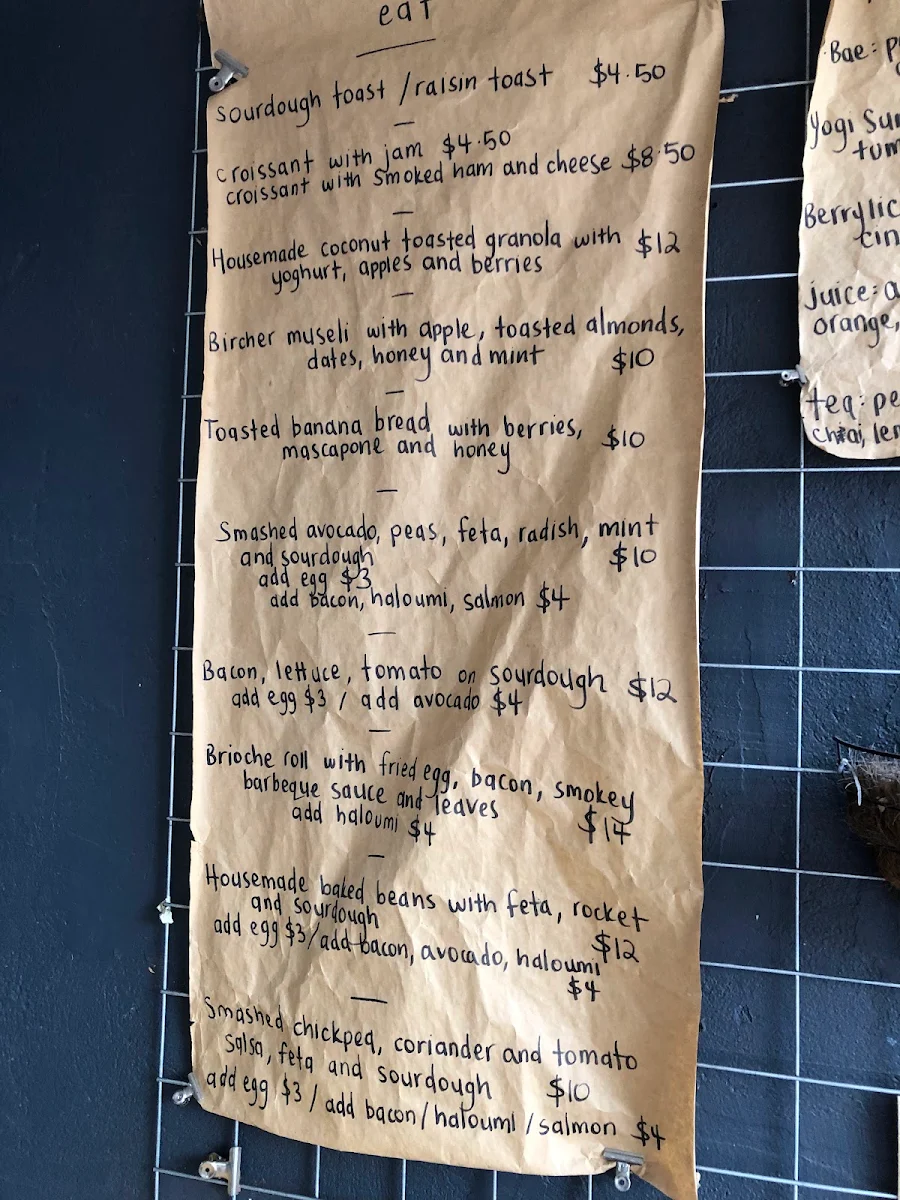 eat
sourdough toast / raisin toast $4.50
croissant with jam $4.50
croissant with smoked ham and cheese $8.50
Housemade coconut toasted granola with $12
yoghurt, apples and berries
Bircher museli with apple, toasted almonds,
dates, honey and mint $10
Toasted banana bread with berries, $10
mascapone and honey
Smashed avocado, peas, feta, radish, mint
and sourdough $10
add egg $3
add bacon, haloumi, salmon $4
Bacon, lettuce, tomato on sourdough $12
add egg $3 / add avocado $4
Brioche roll with fried egg, bacon, smokey
barbeque sauce and leaves
add haloumi $4
Housemade baked beans with feta, rocket
and sourdough $12
add egg $3/add bacon, avocado, haloumi
$4
Smashed chickpea, coriander and tomato
salsa, feta and sourdough $10
add egg $3 / add bacon/haloumi/salmon $4
Bae:
Yogi
juice:
orange,
tea: